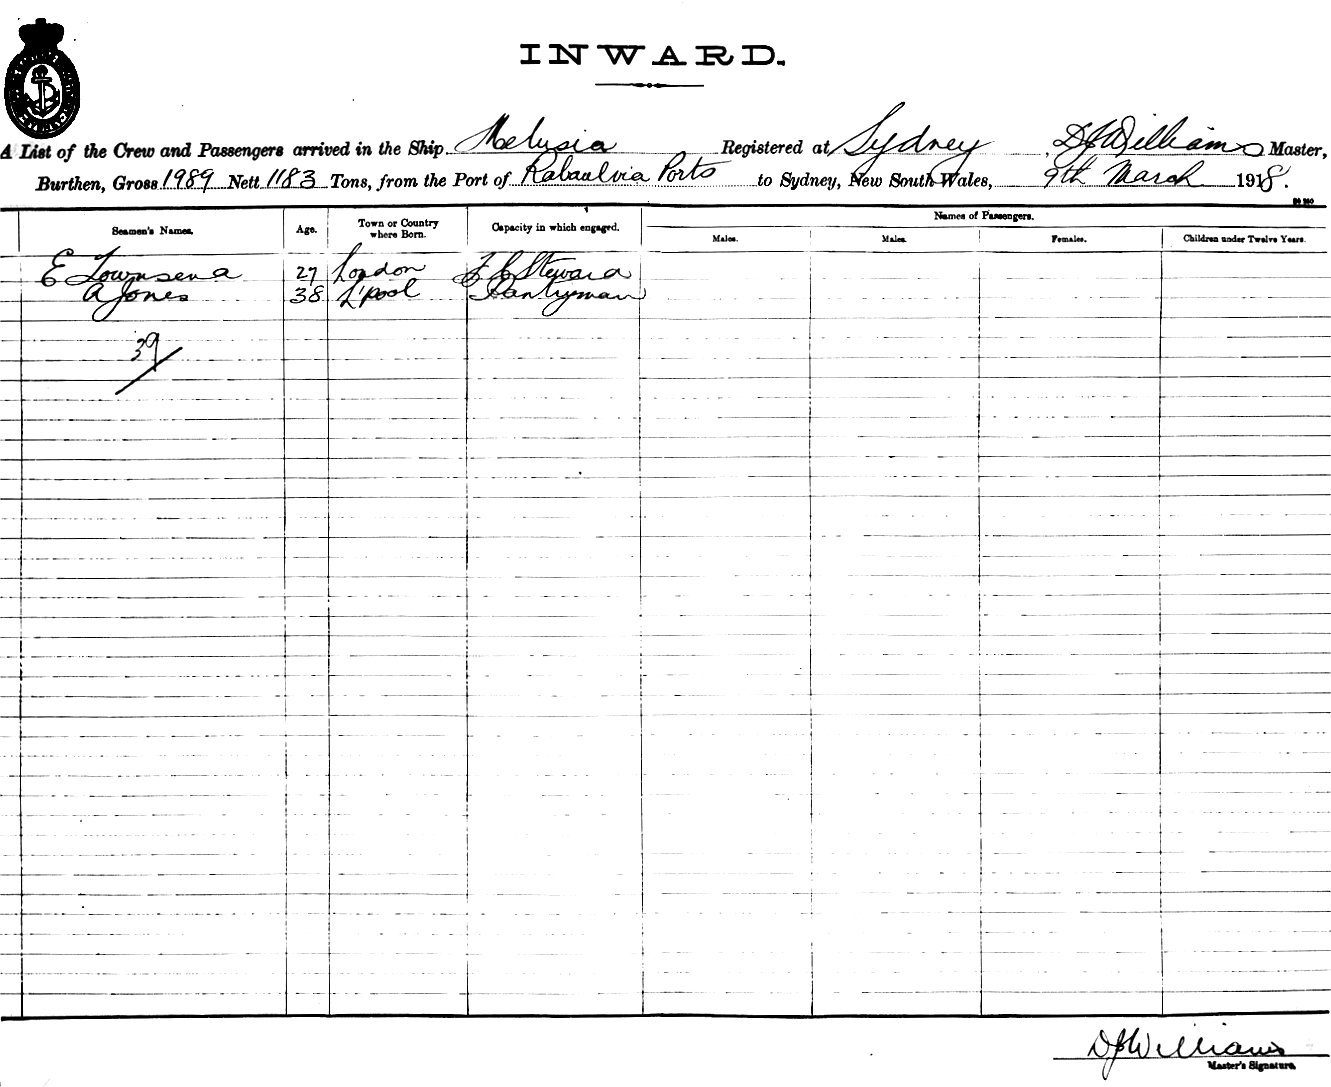 INWARD.
A List of the Crew and Passengers arrived in the Ship Melusia Registered at Sydney, D J Williams Master,
Burthen, Gross 1989 Nett 1183 Tons, from the Port of Rabaul via Ports to Sydney, New South Wales, 9th March 1918.
Seamen's Names. Age. Town or Country where Born. Capacity in which engaged. Names of Passengers.
Males. Males. Females. Children under Twelve Years.
E Townsend 27 London Steward
A Jones 38 L'pool Pantryman
39
D J Williams
Master's Signature.